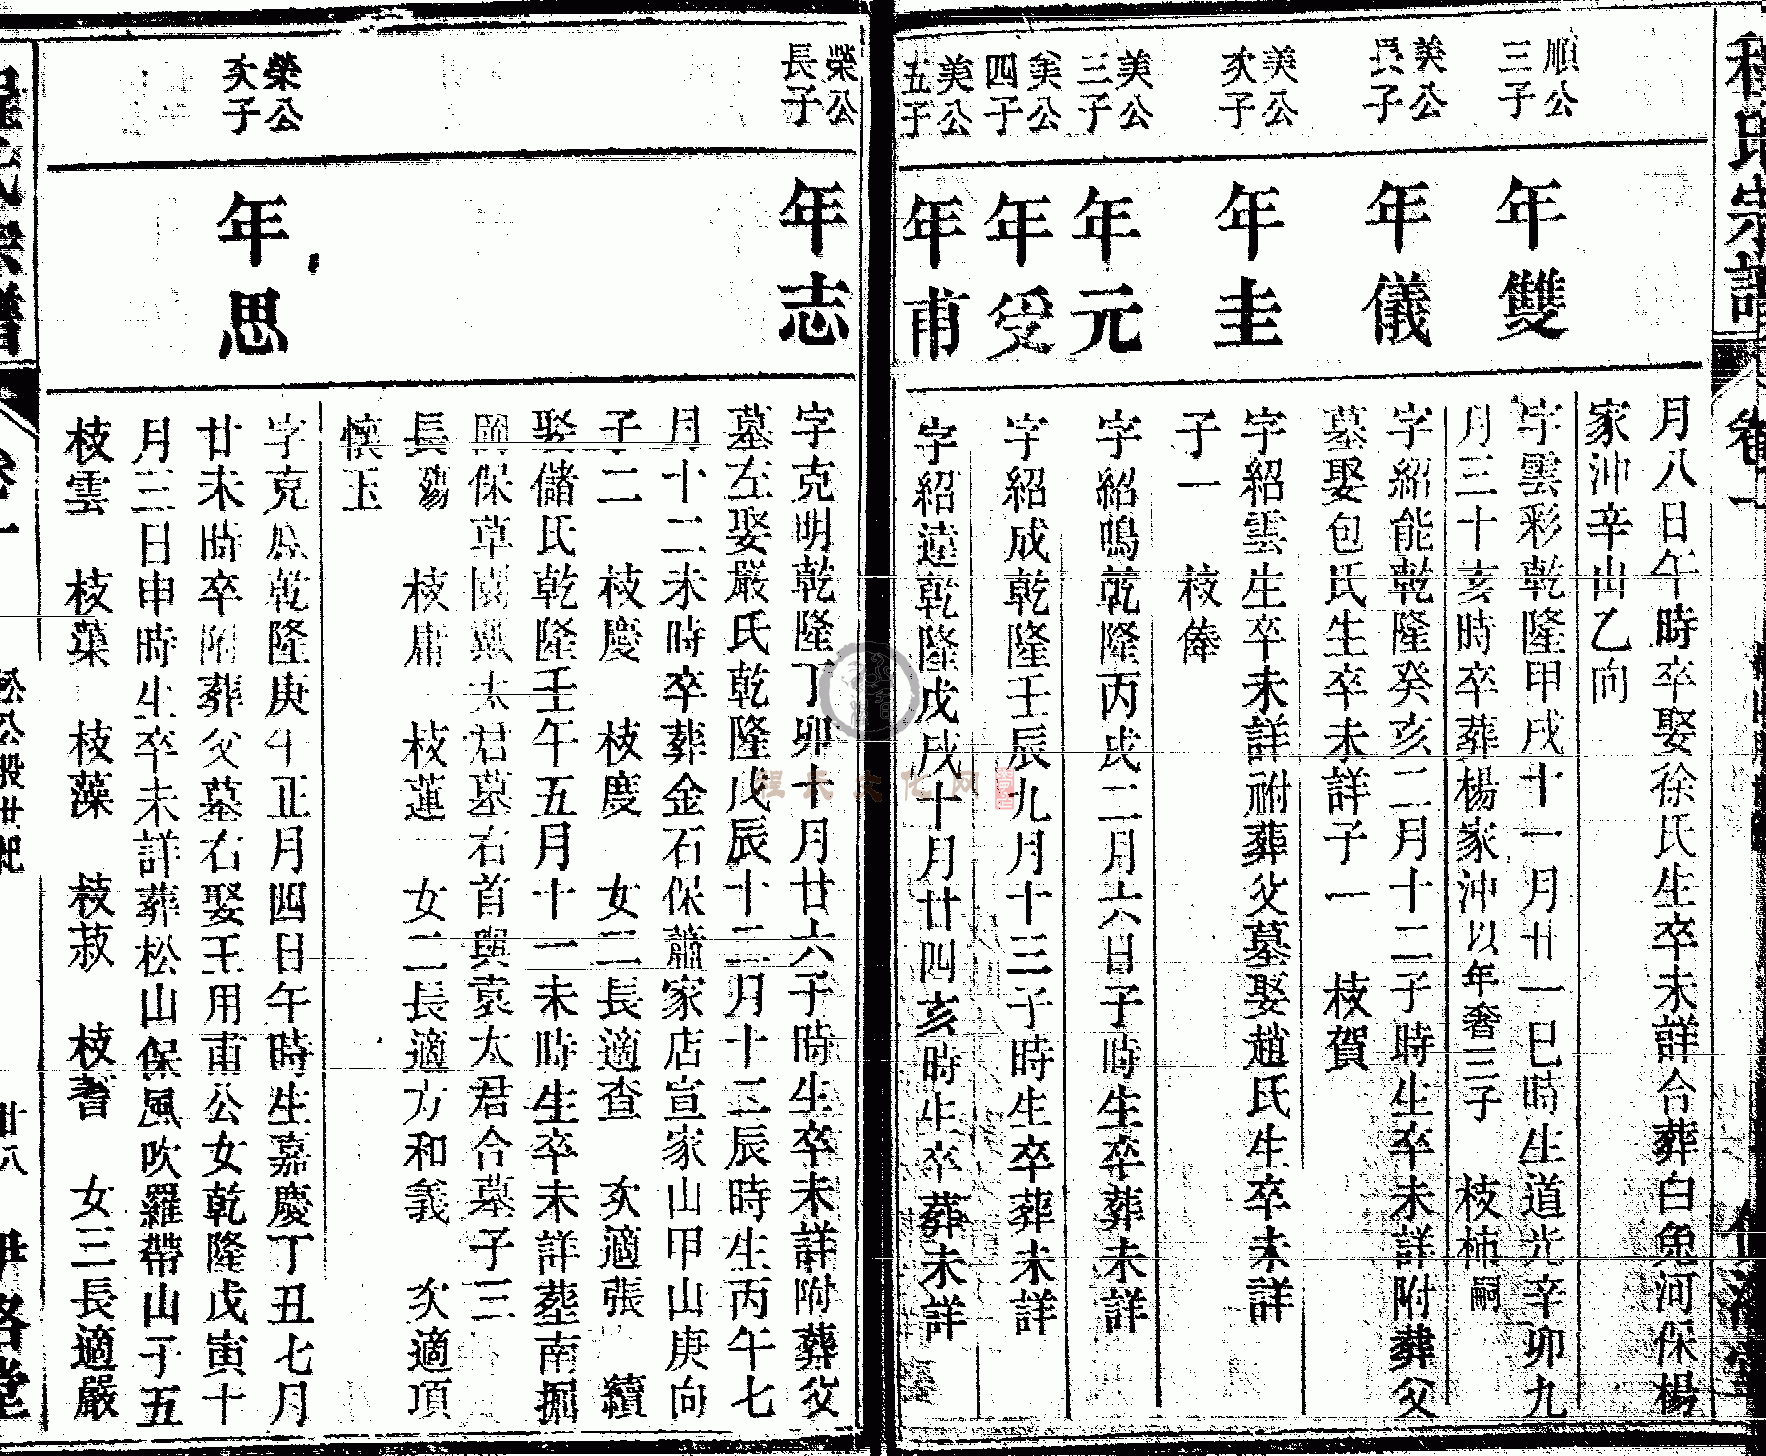 程氏宗譜
卷一
月八日午時卒娶徐氏生卒未詳合葬白兔河保楊
家沖辛山乙向
順公
三子
年雙
字雲彩乾隆甲戌十一月廿一巳時生道光辛卯九
月三十亥時卒葬楊家沖以年奢三子 枝柿嗣
美公
長子
年儀
字紹能乾隆癸亥二月十二子時生卒未詳附葬父
墓娶包氏生卒未詳子一 枝賀
美公
次子
年圭
字紹雲生卒未詳祔葬父墓娶趙氏生卒未詳
子一 枝俸
美公
三子
年元
字紹鳴乾隆丙戌二月六日子時生卒葬未詳
美公
四子
年受
字紹成乾隆壬辰九月十三子時生卒葬未詳
美公
五子
年甫
字紹遠乾隆戊戌十月廿四亥時生卒葬未詳
榮公
長子
年志
字克明乾隆丁卯十月廿六子時生卒未詳附葬父
墓左娶嚴氏乾隆戊辰十二月十二辰時生丙午七
月十二未時卒葬金石保蕭家店宣家山甲山庚向
子二 枝慶 枝度 女二長適查 次適張 續
娶儲氏乾隆壬午五月十一未時生卒未詳葬南掘
岡保草園戴太君墓右首與袁太君合墓子三
長瑒 枝庸 枝蓮 女二長適方和義 次適項
懷玉
榮公
次子
年思
字克 乾隆庚午正月四日午時生嘉慶丁丑七月
廿未時卒附葬父墓右娶王用甫公女乾隆戊寅十
月三日申時生卒未詳葬松山保風吹羅帶山子五
枝雲 枝蕖 枝藻 枝菽 枝蓍 女三長適嚴
程氏宗譜
卷一
松公股世紀
廿八
伊洛堂